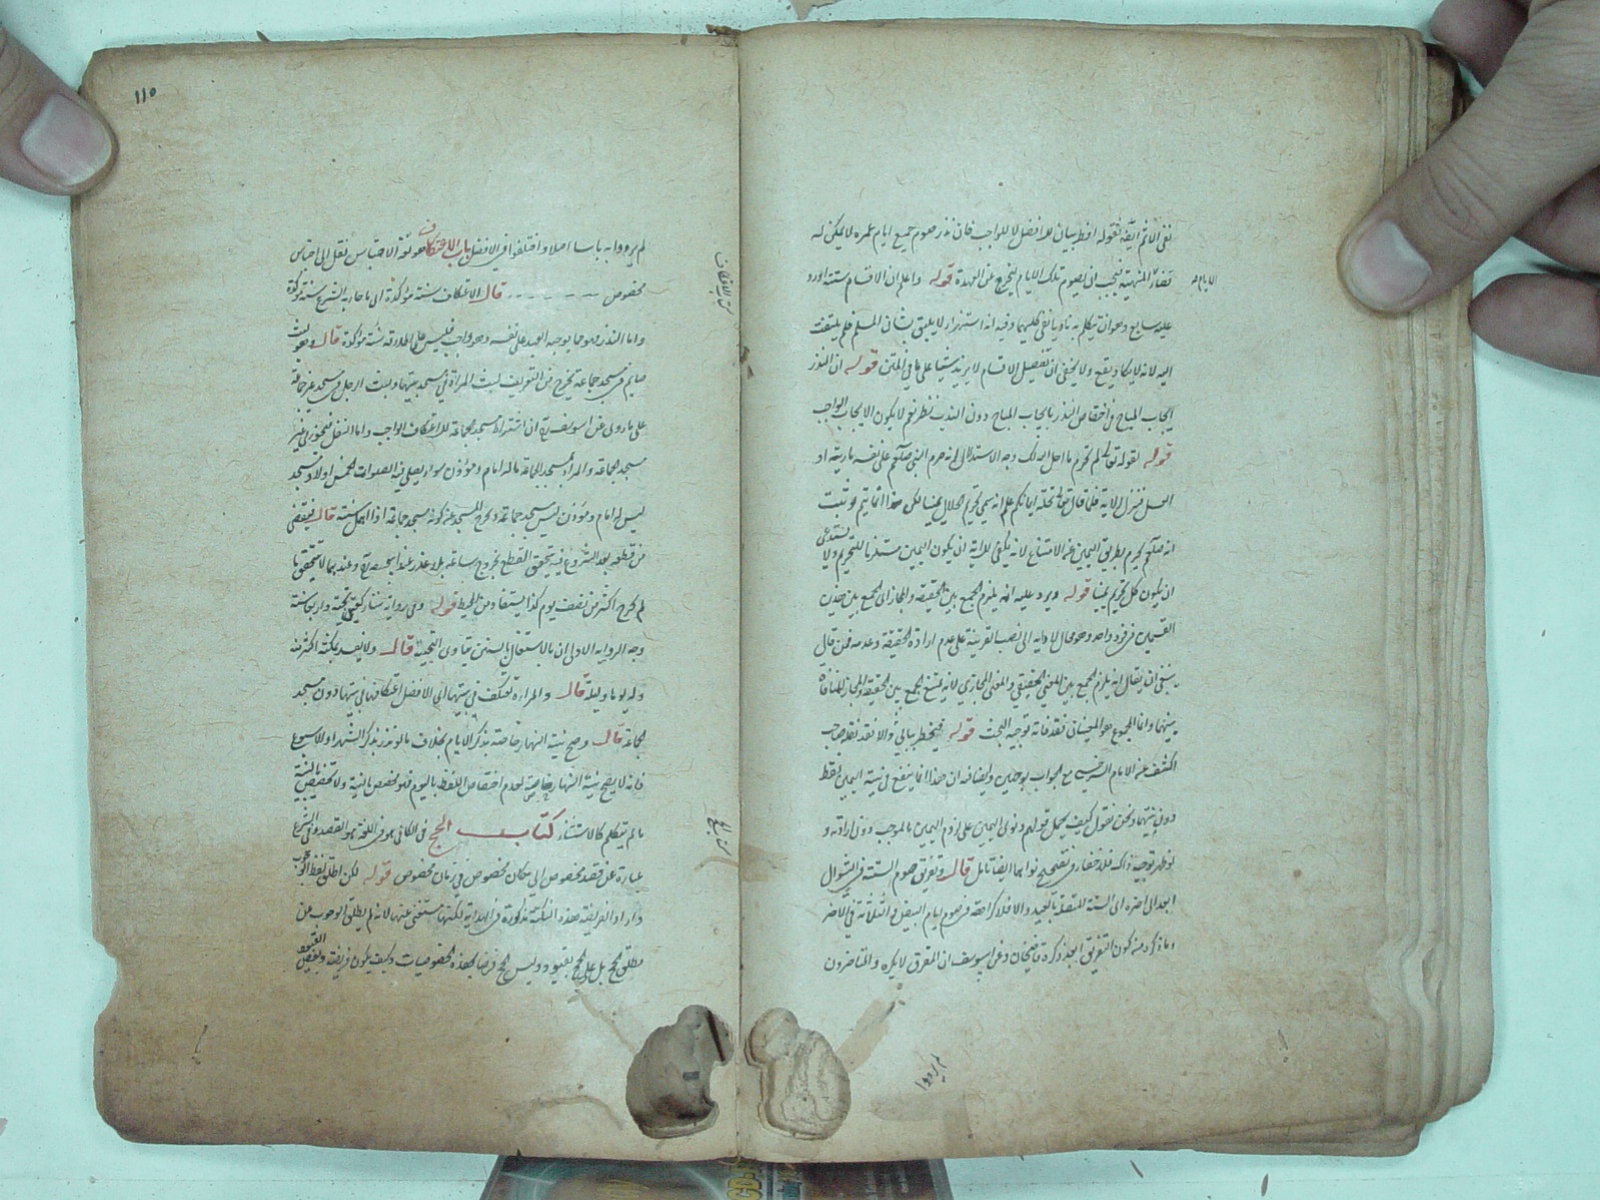 نفى الاثم ايضا فقوله افطر بيان للافضل لا للواجب فان نذر صوم جميع ايام عمره لا يمكن له
قضاء المنهية فيجب ان يصوم تلك الايام ليخرج عن العهدة قوله واعلم ان الاقسام ستة اورد
الايام
عليه سابع وهو ان تكلم به ناويا نفي كليهما وفيه انه استهزاء لا يليق بشان المسلم فلم يلتفت
اليه لانه لا يكاد يقع ولا يخفى ان تفصيل الاقسام لا يزيد شيئا على ما في المتن قوله ان النذر
ايجاب المباح في اختصاص النذر بايجاب المباح دون الندب نظر نعم لا يكون الا لايجاب الواجب
قوله لقوله تعالى لم تحرم ما احل الله لك وجه الاستدلال انه حرم النبي صلعم على نفسه مارية او
العسل فنزل الاية فلما قال تعالى تحلة ايمانكم علم انه سمى تحريم الحلال يمينا لكن هذا انما يتم لو ثبت
انه صلعم لم يحرم بطريق اليمين عن الامتناع لانه يكفي للاية ان يكون اليمين مستلزما للتحريم ولا يستدعى
ان يكون كل تحريم يمينا قوله ويرد عليه انه يلزم الجمع بين الحقيقة والمجاز اى الجمع بين هذين
القسمين في فرد واحد وهو محال لادايه الى نصب القرينة على عدم ارادة الحقيقة وعدمه فمن قال
ينبغي ان يقال انه يلزم الجمع بين المعنى الحقيقي والمعنى المجازي لانه يمتنع الجمع بين الحقيقة والمجاز للمنافاة
بينهما وانما المجموع هو المعنيان فقد فاته توجيه البحث قوله فيخطر ببالي والا فقد نقل صاحب
الكشف عن الامام السرخسي مع الجواب بوجهين وايضا فيه ان هذا انما ينفع في نية اليمين فقط
دون نيتهما ونحن نقول كيف يحمل قولهم ونوى اليمين على لزوم اليمين بالموجب دون ارادته و
لو ظهر توجيه ذاك فلا خفاء في تصحيح نواهما ايضا تامل قال وتفريق صوم الستة في الشوال
ابعد الى اخره اى الستة المتصلة بالعيد والا فلا كراهة في صوم ايام البيض والثلاثة في الاخر
وما ذكره من كون التفريق ابعد ذكره قاضيخان وعن ابي يوسف ان المفرق لا يكره والمتاخرون
لم يروا
١١٥
لم يروا به باسا اصلا واختلفوا في الافضل باب الاعتكاف هو لغة الاحتباس نقل الى احتباس
مخصوص قال الاعتكاف سنة مؤكدة اى ما جاء به الشرع سنة مؤكدة
كتاب الاعتكاف
واما النذر فهو مما يوجبه العبد على نفسه وهو واجب فليس على اطلاقه سنة مؤكدة قال وهو لبث
صايم في مسجد جماعة يخرج من التعريف لبث المراة في مسجد بيتها ولبث الرجل في مسجد غير جماعة
على ما روى عن ابي يوسف ان اشتراط مسجد الجماعة للاعتكاف الواجب واما النفل فيجوز في غير
مسجد الجماعة والمراد بمسجد الجماعة ما له امام ومؤذن سواء يصلى فيه الصلوات الخمس او لا ومسجد
ليس له امام ومؤذن ليس مسجد جماعة قال
من قطعه بعد الشروع فيه يتحقق القطع بخروج ساعة بلا عذر عند ابي حنيفة وعندهما لا يتحقق ما
لم يخرج اكثر من نصف يوم كذا يستفاد من المحيط قوله وفي رواية ستا ركعتي تحية واربعا سنة
وجه الرواية الاولى ان بالاشتغال بالسنن يتادى التحية قال ولا يفسد بمكثه اكثر منه
ولو يوما وليلة قال والمراءة تعتكف في بيتها اى الافضل اعتكافها في بيتها دون مسجد
الجماعة قال وصح نية النهار خاصة بذكر الايام بخلاف ما لو نذر بذكر الشهر او الاسبوع
فانه لا يصح نية النهار خاصة لعدم اختصاص اللفظ باليوم فهو تخصيص بالنية ولا تخصيص بالنية
ما لم يتكلم كالاستثناء كتاب الحج في الكافي هو في اللغة هو القصد وفي الشرع
كتاب الحج
عبارة عن قصد مخصوص الى مكان مخصوص في زمان مخصوص قوله لكن اطلق لفظ الوجوب
واراد الفريضة هذه النكتة مذكورة في الهداية لكنها مستغنى عنها لانه لم يطلق الوجوب من
مطلق الحج بل على الحج بقيود وليس الحج فرضا بهذه الخصوصيات وكيف يكون فريضة وبعض القيود